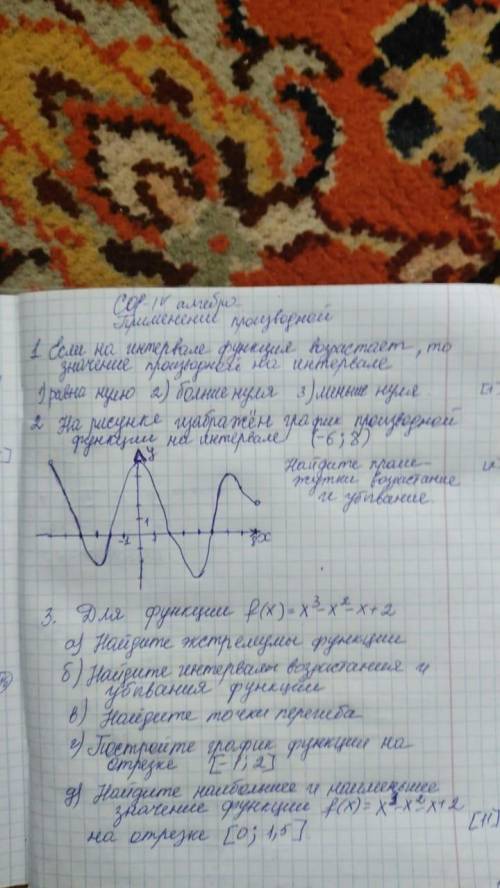 СОР-IV алгебра
Применение производной
1 Если на интервале функция возрастает, то
значение производной на интервале
1) равна нулю 2) больше нуля 3) меньше нуля
2 На рисунке изображён график производной
функции на интервале (-6; 8)
Найдите проме-
жутки возрастание
и убывание
y
1
-1
8 x
3. Для функции f(x) = x³-x²-x+2
а) Найдите экстремумы функции
б) Найдите интервалы возрастания и
убывания функции
в) Найдите точки перегиба
г) Постройте график функции на
отрезке [-1; 2]
д) Найдите наибольшее и наименьшее
значение функции f(x) = x³-x²-x+2
на отрезке [0; 1,5]
[11]